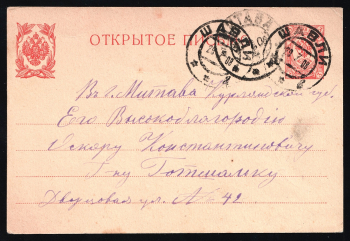 ОТКРЫТОЕ
ШАВЛИ
ШАВЛИ
Въ г. Митава Курляндской губ.
Его Высокоблагородію
Оскару Константиновичу
Г-ну Готшалку
Дворцовая ул. № 42